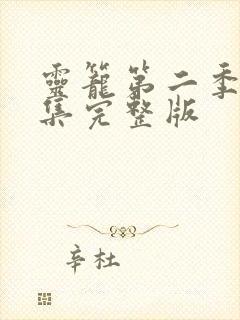 靈籠第二季
集完整版
辛杜